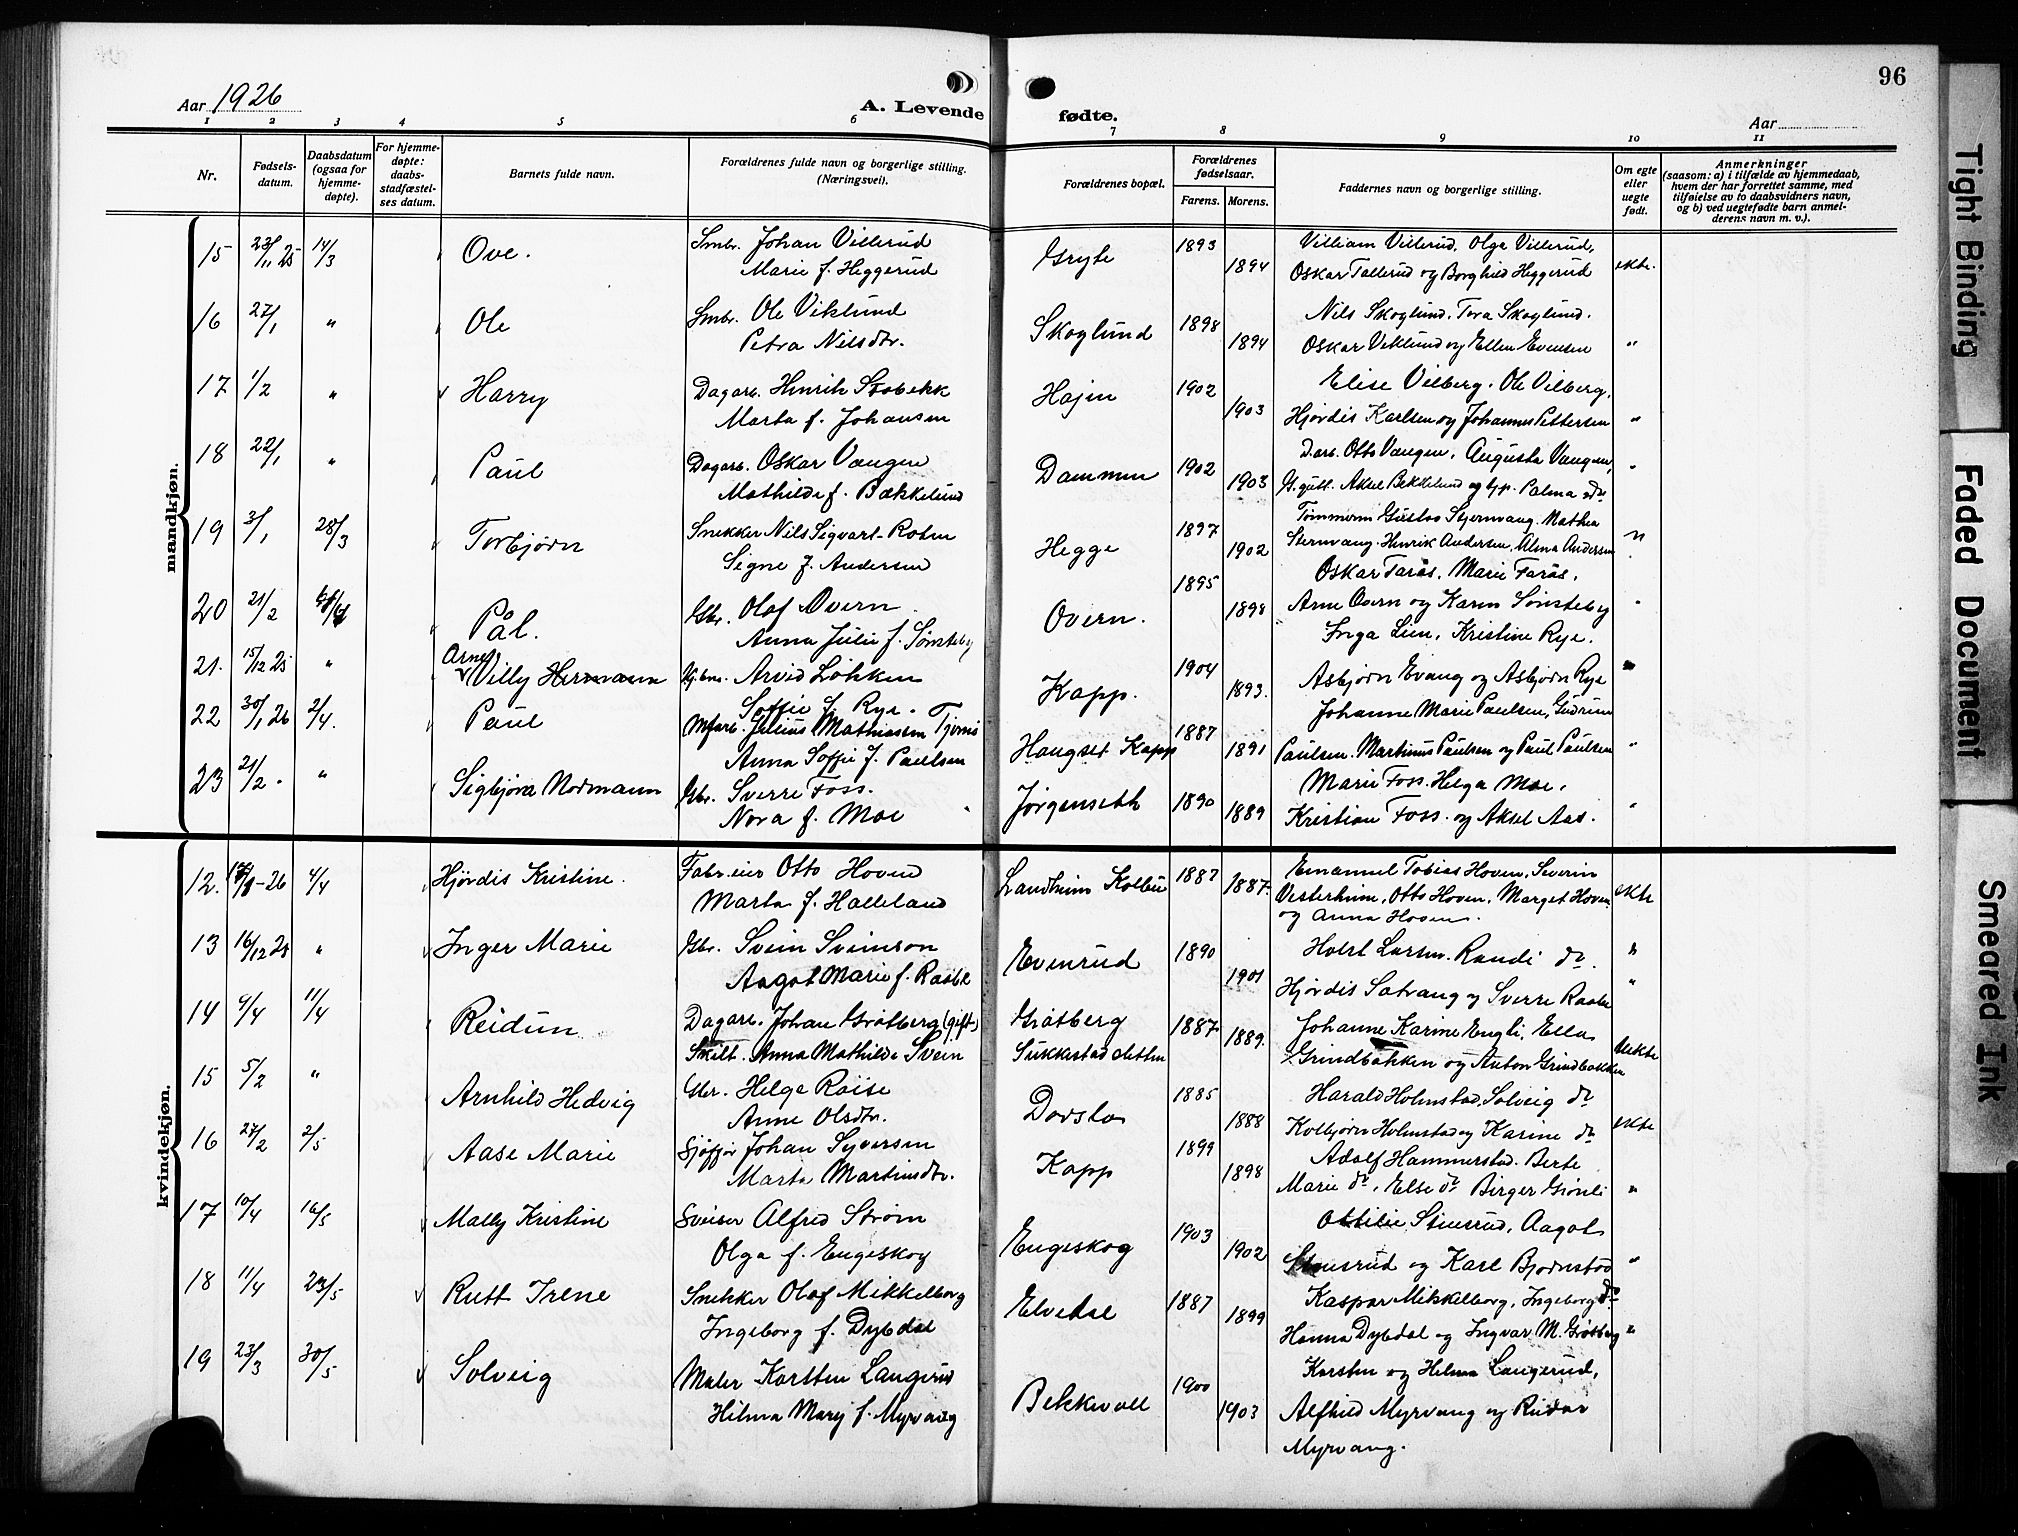 Aar 1926
A. Levende
fødte.
Aar
96
1 2 3 4 5 6 7 8 9 10 11
Nr.
Fødsels-
datum.
Daabsdatum
(ogsaa for
hjemme-
døpte).
For hjemme-
døpte:
daabs-
stadfæstel-
ses datum.
Barnets fulde navn.
Forældrenes fulde navn og borgerlige stilling.
(Næringsvei).
Forældrenes bopæl.
Forældrenes
fødselsaar.
Farens. Morens.
Faddernes navn og borgerlige stilling.
Om egte
eller
uegte
født.
Anmerkninger
(saasom: a) i tilfælde av hjemmedaab,
hvem der har forrettet samme, med
tilføielse av to daabsvidners navn,
og b) ved uegtefødte barn anmel-
derens navn m. v.).
mandkjøn.
15 23/11 25 14/3 Ove. Smbr. Johan Villerud Gryte 1893 Villiam Villerud, Olga Villerud,
Marie f. Heggerud 1894 Oskar Tallerud og Borghild Heggerud ekte.
16 27/1 " Ole Smbr. Ole Viklund Skoglund 1898 Nils Skoglund, Tora Skoglund.
Petra Nilsdtr. 1894 Oskar Viklund og Ellen Evensen "
17 1/2 " Harry Dagarb. Henrik Stabekk Højen 1902 Elise Vilberg. Ole Vilberg,
Marta f. Johansen 1903 Hjørdis Karlsen og Johannes Pettersen "
18 22/1 " Paul Dagarb. Oskar Vangen Dammen 1902 D.arb. Otto Vangen, Augusta Vangen,
Mathilde f. Bækkelund 1903 G.gutt. Aksel Bekkelund og Palma "
19 3/1 28/3 Torbjørn Snekker Nils Sigvart Roten Hegge 1897 Tømmerm Gustav Stjernvang. Mathea
Signe f. Andersen 1902 Sternvang. Henrik Andersen, Alma Andersen "
20 21/2 Pål. Gbr. Olaf Overn Overn. 1895 Oskar Farås, Marie Farås,
Anna Julie f. Sønsteby 1898 Arne Overn og Karen Sønsteby "
21. 15/12 25 " Arne Villy Hermann Arvid Løkken Kapp. 1904 Inga Lien, Kristine Rye.
Soffie f. Rye. 1893. Asbjørn Evang og Asbjørn Rye "
22 30/1 26 2/4. Paul Julius Mathiassen Tjernes Haugset Kapp 1887 Johanne Marie Paulsen, Gudrun
Anna Soffie f. Paulsen 1891 Paulsen. Martinus Paulsen og Paul Paulsen "
23 21/2 . " Sigbjørn Normann Gbr. Sverre Foss. Jørgenseth 1890 Marie Foss. Helga Moe,
Nora f. Moe 1889 Kristian Foss. og Aksel Aas. "
kvindekjøn.
12. -26 4/4 Hjørdis Kristine. Fabr.eier Otto Hoven Landheim Kolbu 1887 Emanuel Tobias Hoven, Severin
Marta f. Halleland 1887. Vesterheim, Otto Hoven, Marget Hoven ekte
og Anna Hoven.
13 16/12 25 " Inger Marie Gbr. Svein Sveinson Evenrud 1890 Holst Larsen. Randi do. "
Aagot Marie f. Raabe 1901 Hjørdis Satrang og Sverre Raabe "
14 9/4 11/4 Reidun Dagarb. Johan Grøtberg (gift) Grøtberg 1887 Johanne Karine Engli, Ella
Skilt. Anna Mathilde Svein Sukkestad 1889. Grindbakken og Anton Grindbakken uekte
15 5/2 " Arnhild Hedvig Gbr. Helge Røise Dovsta 1885 Harald Holmstad, Solveig do
Anne Olsdtr. 1888 Kolbjørn Holmstad og Karine do ekte
16 27/2 2/5 Aase Marie Sjøfør Johan Syversen Kapp 1899 Adolf Hammerstad. Berte
Marta Martinsdtr. 1898 Marie do, Else do Birger Grønli "
17 10/4 16/5 Mally Kristine Sveiser Alfred Strøm Engeskog 1903 Ottilie Stensrud, Aagot
Olga f. Engeskog 1902 Stensrud og Karl Bjørnstad "
18 11/4 23/5 Rutt Irene Snekker Olaf Mikkelborg Elvedal 1887 Kaspar Mikkelborg, Ingeborg do
Ingeborg f. Dybdal 1899 Hanna Dybdal og Ingvar M. Grøtberg "
19 23/3 30/5 Solveig Maler Karsten Langerud Bekkevoll 1900 Karsten og Helma Langerud,
Hilma Mary f. Myrvang 1903 Alfhild Myrvang og Reidar
Myrvang.
Tight Binding
Faded Document
Smeared Ink